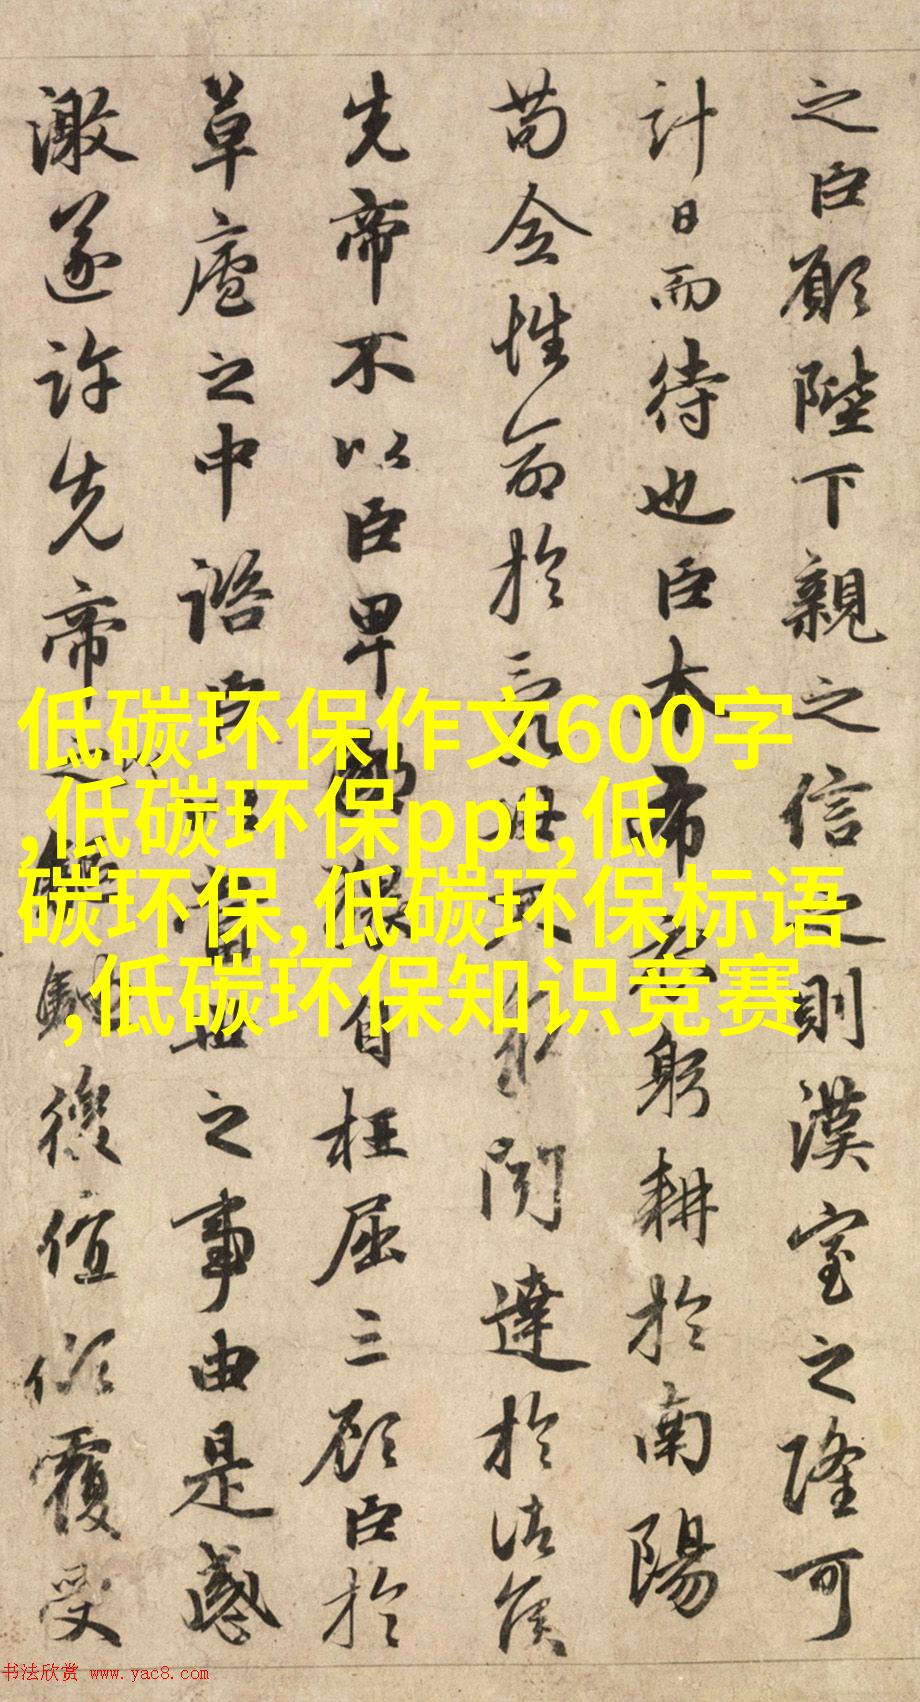 之臣願陛下親之信之則漢室之隆可
計日而待也臣本布衣躬耕於南陽
苟全性命於世不求聞達於諸侯
先帝不以臣卑鄙猥自枉屈三顧臣於
草廬之中諮臣當世之事由是感
激遂許先帝後值傾覆受
低碳环保作文600字
,低碳环保ppt,低
碳环保,低碳环保标语
,低碳环保知识竞赛
书法欣赏 www.yac8.com